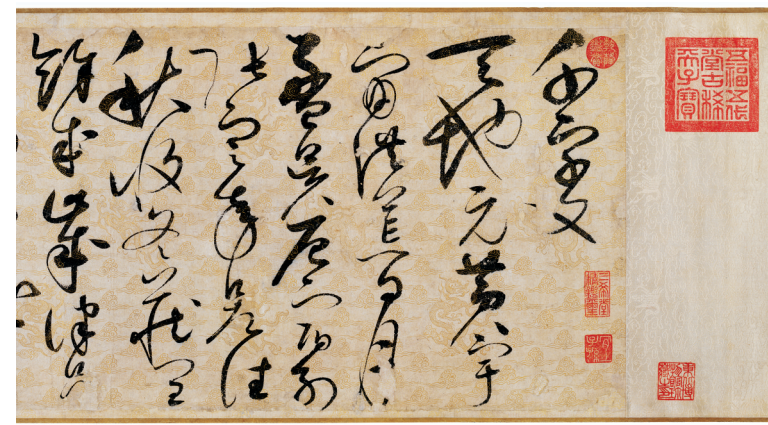 五福五代
堂古稀
天子寶
千字文
天地元黃宇
宙洪荒日月
盈昃辰宿列
張寒來暑往
秋收冬藏閏
餘成歲律呂
三希堂
精鑑璽
宜
子孫